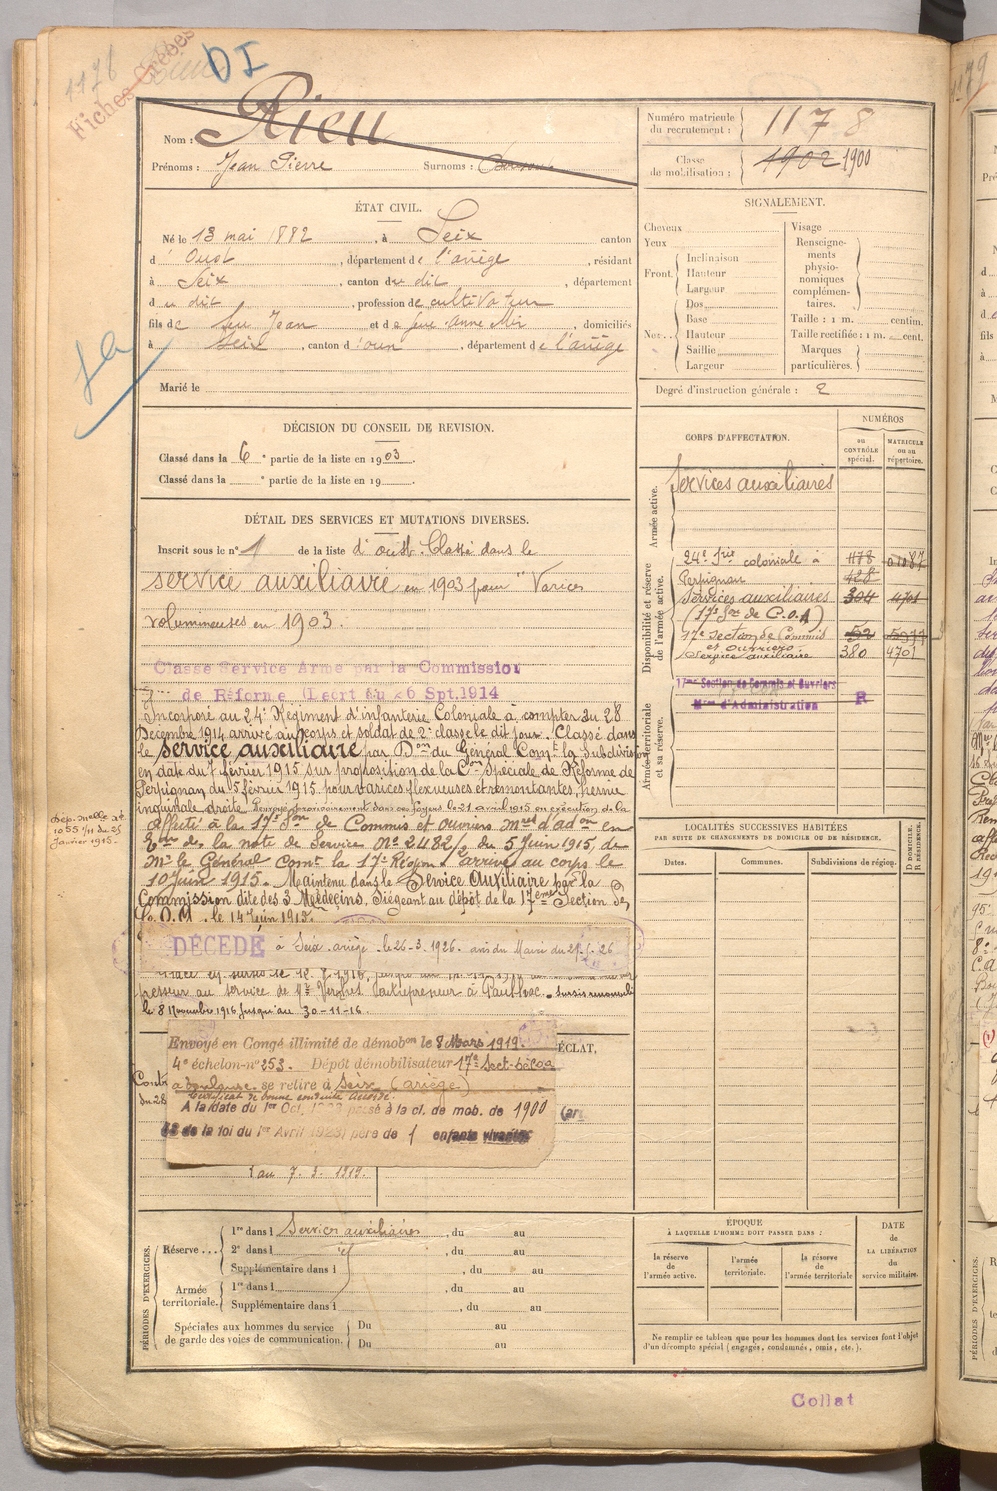 1178
Fiches Créées
DI
Nom : Rieu
Prénoms : Jean Pierre Surnoms :
Numéro matricule du recrutement : 1178
Classe de mobilisation : 1902 1900
ÉTAT CIVIL.
Né le 13 mai 1882, à Seix canton
d'Oust, département de l'ariège, résidant
à Seix, canton du dit, département
du dit, profession de cultivateur
fils de feu Jean et de feue Anne Mir, domiciliés
à Seix, canton d'oust, département de l'ariège
Marié le
SIGNALEMENT.
Cheveux
Yeux
Front. Inclinaison
Hauteur
Largeur
Nez Dos
Base
Hauteur
Saillie
Largeur
Visage
Renseignements physionomiques complémentaires.
Taille : 1 m. centim.
Taille rectifiée : 1 m. cent.
Marques particulières.
Degré d'instruction générale : 2
DÉCISION DU CONSEIL DE REVISION.
Classé dans la 6e partie de la liste en 1903.
Classé dans la e partie de la liste en 19
CORPS D'AFFECTATION.
NUMÉROS
au CONTRÔLE spécial.
MATRICULE ou au répertoire.
Armée active.
Services auxiliaires
Disponibilité et réserve de l'armée active.
24e Irie coloniale à 1178
Perpignan 428
Services auxiliaires 304 4701
(17e Son de C.O.A)
17e section de Commis 52
et ouvriers
Service auxiliaire 380 4701
Armée territoriale et sa réserve.
17me Section de Commis et Ouvriers
Mres d'Administration R
DÉTAIL DES SERVICES ET MUTATIONS DIVERSES.
Inscrit sous le n° 1 de la liste d'oust. Classé dans le
service auxiliaire en 1903 pour "Varices
volumineuses en 1903.
Classé Service Armé par la Commission
de Réforme (Décrt du 26 Spt.1914
Incorporé au 24e Régiment d'infanterie Coloniale à compter du 28
Décembre 1914 arrivé au corps et soldat de 2e classe le dit jour. Classé dans
le service auxiliaire par Don du Général Comt la Subdivision
en date du 7 février 1915 sur proposition de la Con Spéciale de Réforme de
Perpignan du 5 février 1915 pour varices flexueuses et remontantes, hernie
inguinale droite. Renvoyé provisoirement dans ses foyers le 21 avril 1915 en exécution de la
dép. melle
Janvier 1915.
Affecté à la 17e Son de Commis et ouvriers mres d'adon en
de la note de Service No 2482/ du 5 Juin 1915, de
Mr le Général Comt la 17e Région. arrivé au corps le
10 Juin 1915. Maintenu dans le Service Auxiliaire par la
Commission dite des 3 Médecins, Siégeant au dépôt de la 17eme Section de
C. O. M. le 14 Juin 1915.
DÉCÉDÉ à Seix ariège le 26-3-1926 avis du Maire du
presseur au service de Mr Vergnes Entrepreneur à Pauillac. Sursis renouvelé
le 8 Novembre 1916 Jusqu'au 30-11-16.
Envoyé en Congé illimité de démobon le 8 Mars 1919.
4e échelon-n° 253. Dépôt démobilisateur 17e Sect-
à Toulouse se retire à Seix (ariège)
Certificat de bonne conduite accordé.
A la date du 1er Oct. 1923 passé à la cl. de mob. de 1900 (art
de la loi du 1er Avril 1923) père de 1 enfants vivants
ÉCLAT,
au 7. 3. 1919.
LOCALITÉS SUCCESSIVES HABITÉES
PAR SUITE DE CHANGEMENTS DE DOMICILE OU DE RÉSIDENCE.
Dates. Communes. Subdivisions de région. D DOMICILE. R RÉSIDENCE.
PÉRIODES D'EXERCICES.
Réserve ... 1re dans l Services auxiliaires, du au
2e dans l id, du au
Supplémentaire dans l, du au
Armée territoriale. 1re dans l, du au
Supplémentaire dans l, du au
Spéciales aux hommes du service de garde des voies de communication. Du au
Du au
ÉPOQUE
À LAQUELLE L'HOMME DOIT PASSER DANS :
la réserve de l'armée active.
l'armée territoriale.
la réserve de l'armée territoriale
DATE de LA LIBÉRATION du service militaire.
Ne remplir ce tableau que pour les hommes dont les services font l'objet
d'un décompte spécial (engagés, condamnés, omis, etc.).
Collat